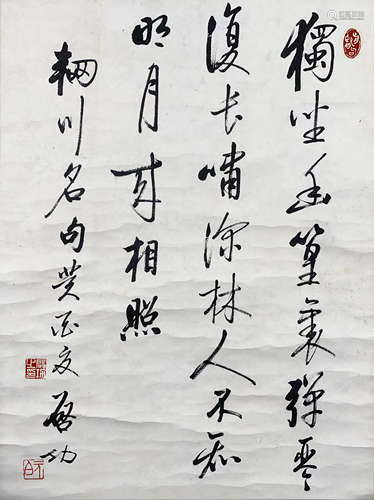 獨坐幽篁裏彈琴
復長嘯深林人不知
明月來相照
輞川名句癸酉夏啓功